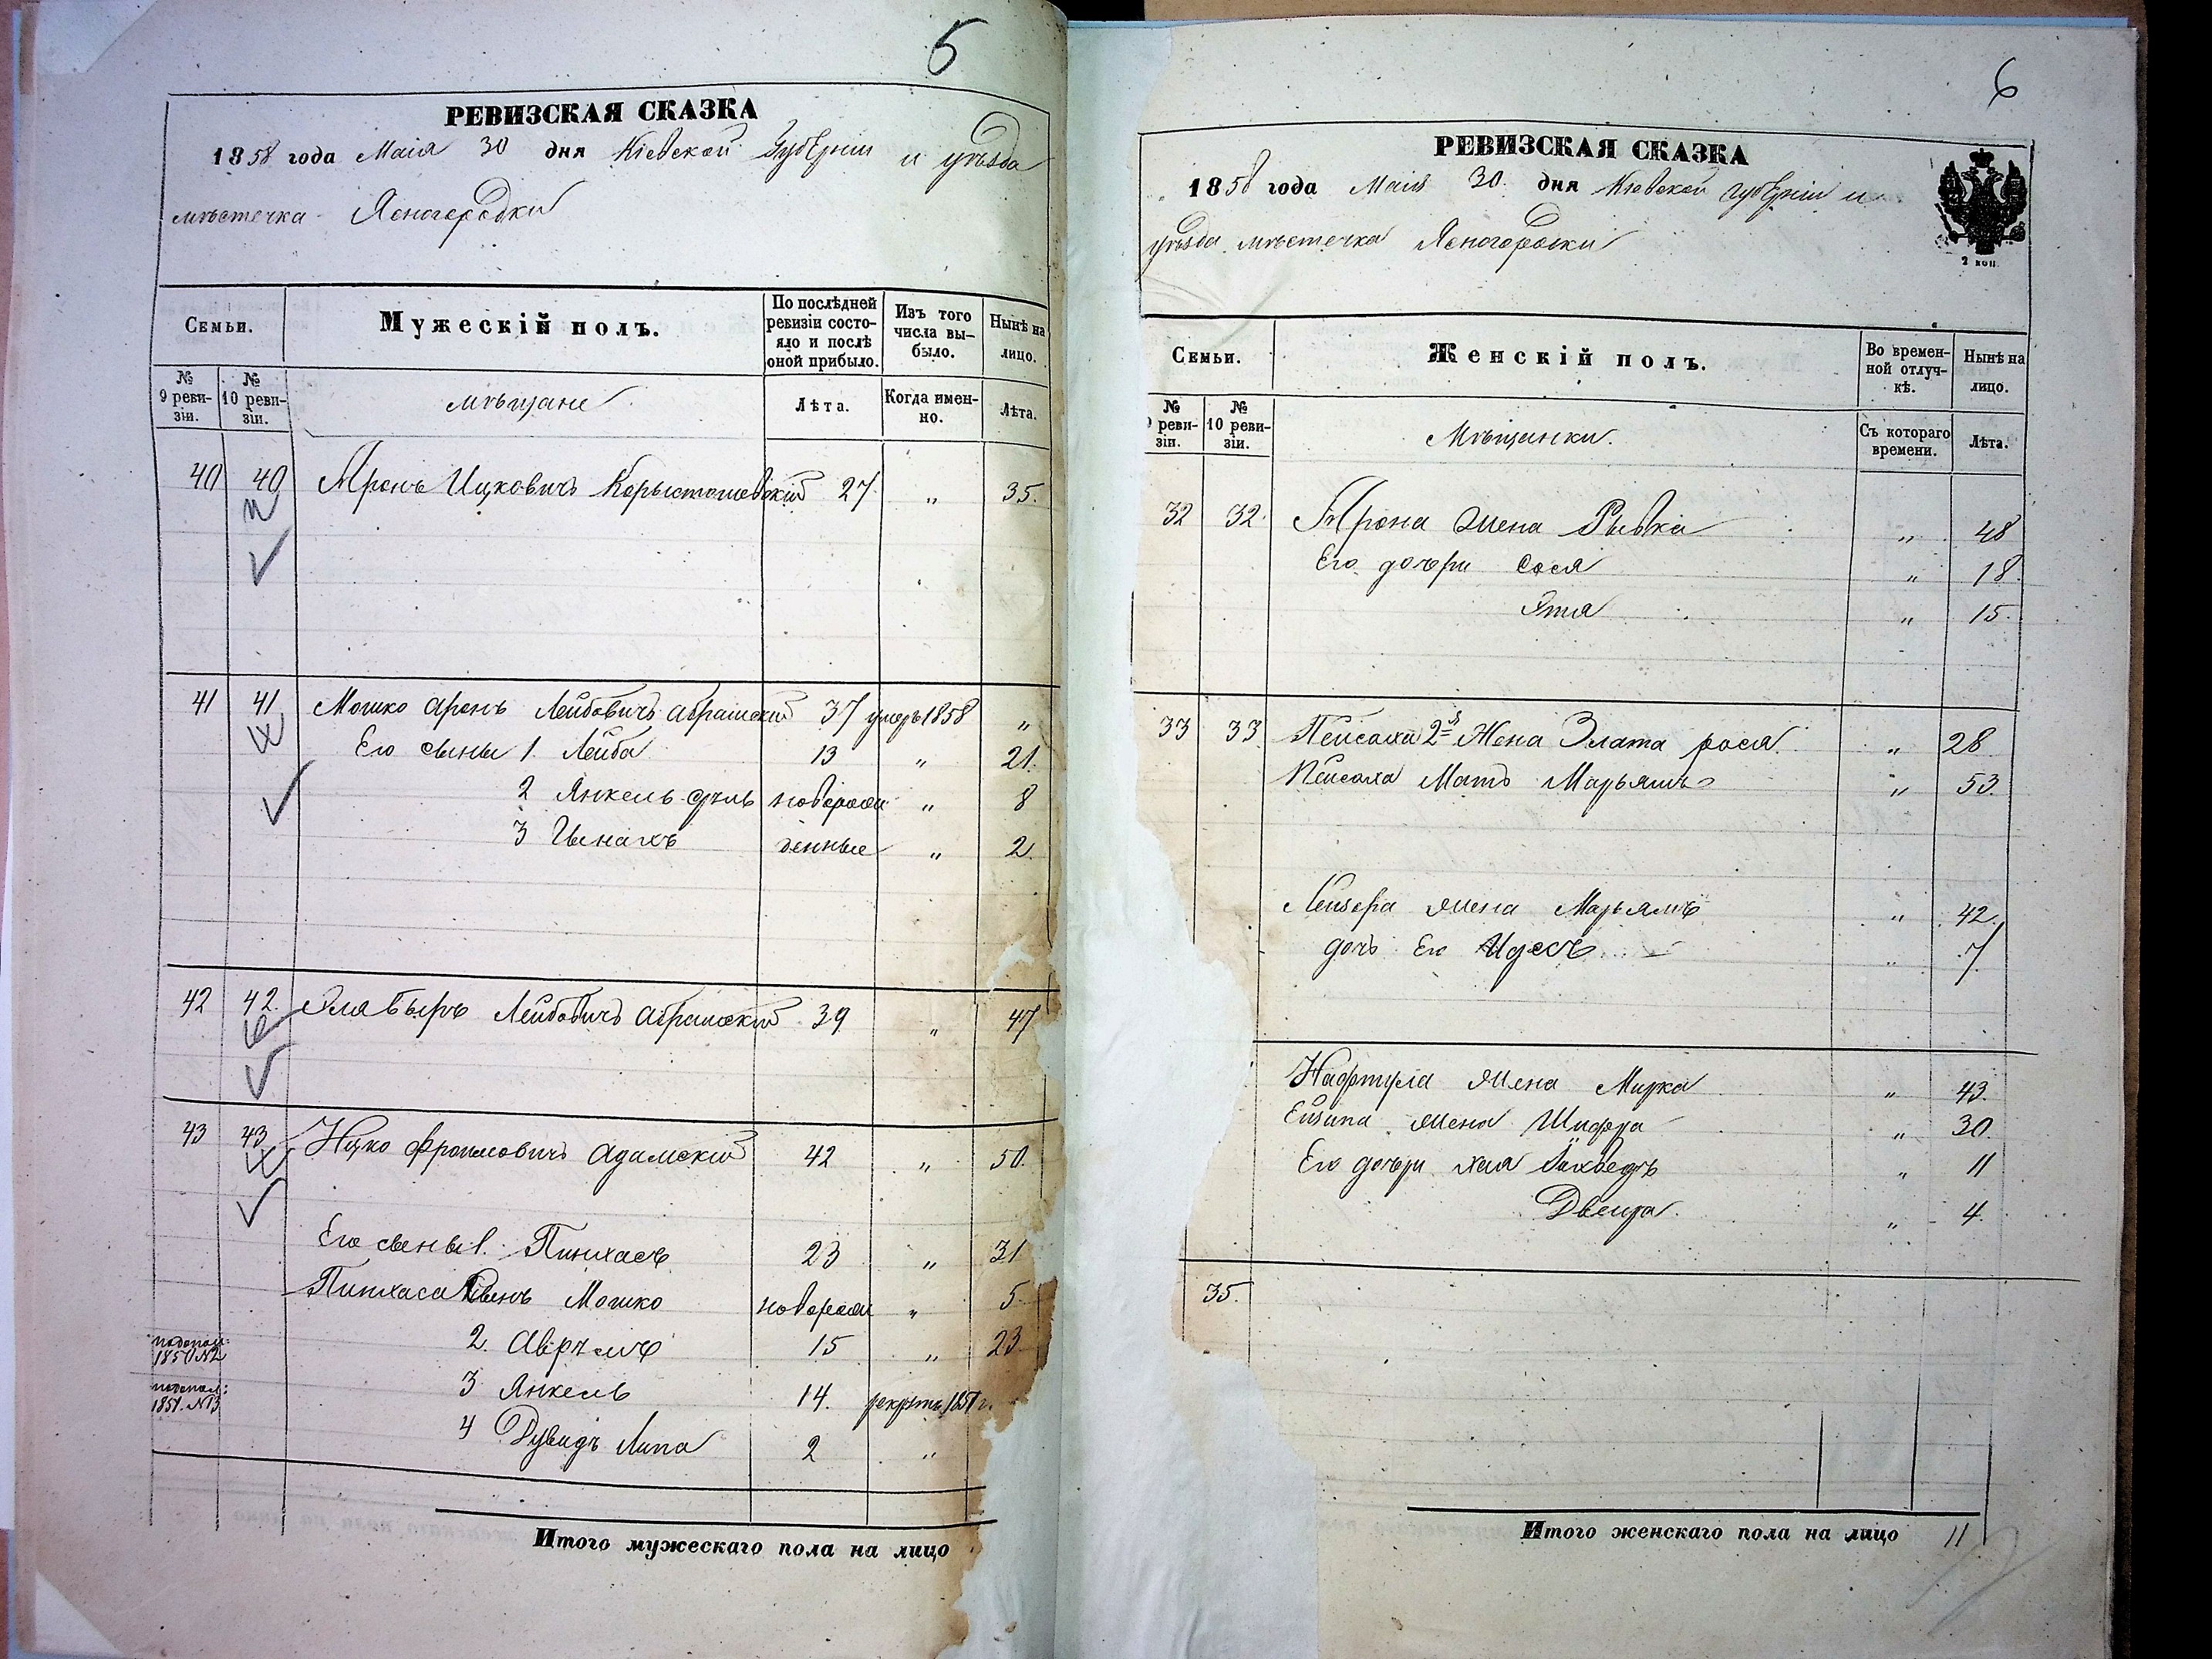 5
РЕВИЗСКАЯ СКАЗКА
1858 года Маія 30 дня Кіевской Губерніи и уѣзда
мѣстечка Ясногородки
Семьи.
Мужескій полъ.
По послѣдней ревизіи состояло и послѣ оной прибыло.
Изъ того числа выбыло.
Нынѣ на лицо.
№ 9 ревизіи.
№ 10 ревизіи.
мѣщане
Лѣта.
Когда именно.
Лѣта.
40 40 Аронъ Ицковичъ Корыстошевскій 27 „ 35.
41 41 Мошко Аронъ Лейбовичъ Абрамскій 37 умеръ 1858 „
Его сыны 1. Лейба 13 „ 21.
2 Янкель новорож „ 8
3 денные „ 2
42 42 Эля Быръ Лейбовичъ Абрамскій 39 „ 47
43 43 Ицко Фроимовичъ Адамскій 42 „ 50.
Его сыны 1. Пинхасъ 23 „ 31
Пинхаса сынъ Мошко новорож „ 5
2. Авръмъ 15 „ 23
3 Янкель 14. рекрутъ 185 г.
4 Дувидъ Липа 2 „
Итого мужескаго пола на лицо
6
РЕВИЗСКАЯ СКАЗКА
1858 года Маія 30. дня Кіевской губерніи и
уѣзда мѣстечка Ясногородки
2 коп.
Семьи.
Женскій полъ.
Во временной отлучкѣ.
Нынѣ на лицо.
№ 9 ревизіи.
№ 10 ревизіи.
Мѣщанки.
Съ котораго времени.
Лѣта.
32 32 Арона жена Рывка „ 48
Его дочери Сося „ 18.
Эта „ 15.
33 33 Пейсаха 2я Жена Злата рося „ 28
Пейсаха Мать Марьямъ „ 53.
Лейзера жена Марьямъ „ 42.
дочь Его Идесъ „ 7.
Нафтула жена Мирка „ 43.
жена Шифра „ 30.
Его дочери хая „ 11
Двейра „ 4.
35.
Итого женскаго пола на лицо 11